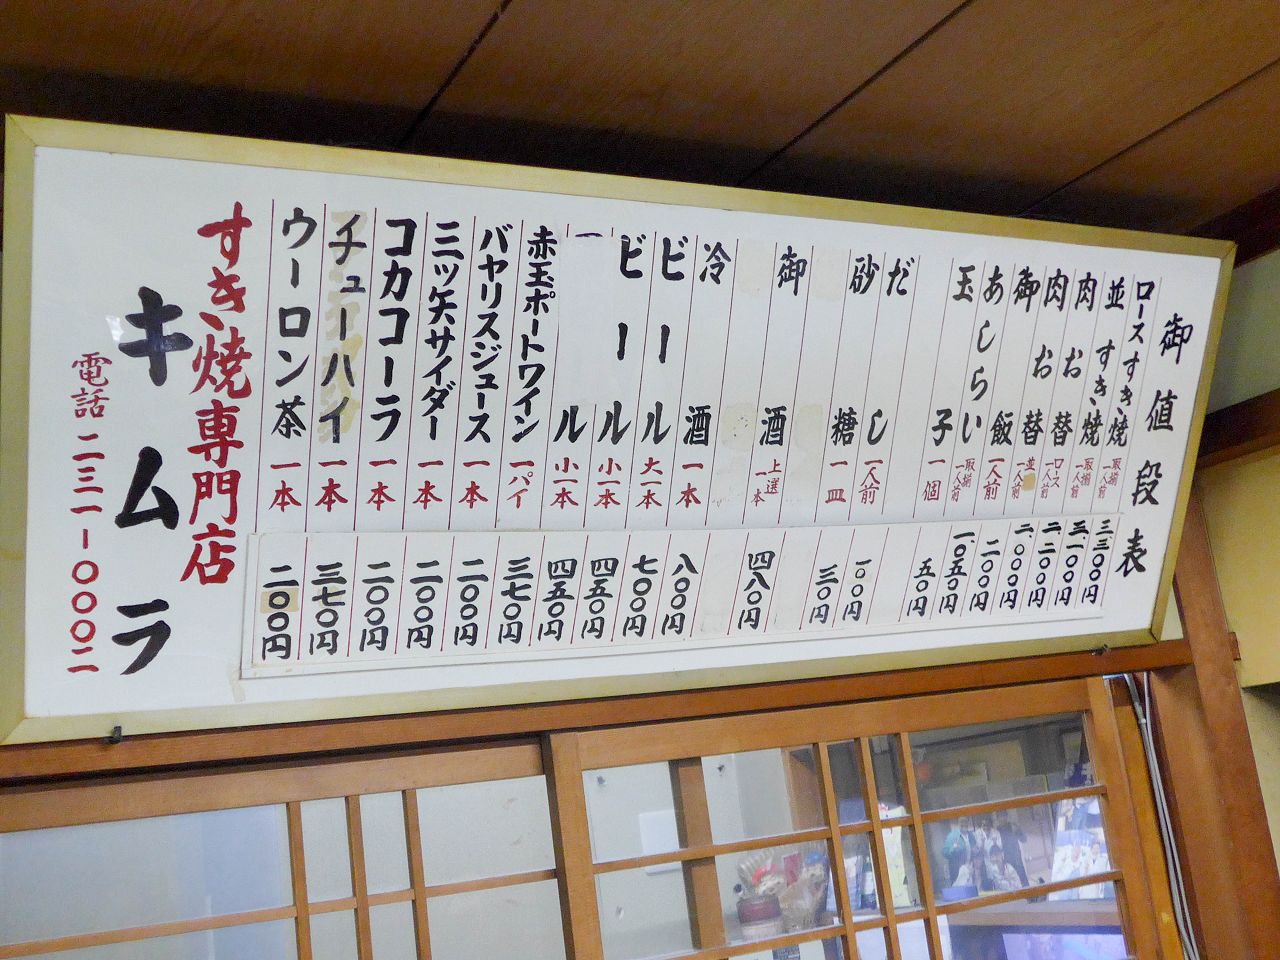 御値段表
ロースすき焼 取揃一人前 三三〇〇円
並すき焼 取揃一人前 三一〇〇円
肉お替 ロース一人前 二二〇〇円
肉お替 並一人前 二〇〇〇円
御飯 一人前 二〇〇円
あしらい 取揃一人前 一〇五〇円
玉子 一個 五〇円
だし 一人前 一〇〇円
砂糖 一皿 三〇円
御酒 上選一本 四八〇円
冷酒 一本 八〇〇円
ビール 大一本 七〇〇円
ビール 小一本 四五〇円
ル 小一本 四五〇円
赤玉ポートワイン 一パイ 三七〇円
バヤリスジュース 一本 二〇〇円
三ツ矢サイダー 一本 二〇〇円
コカコーラ 一本 二〇〇円
チューハイ 一本 三七〇円
ウーロン茶 一本 二〇〇円
すき焼専門店
キムラ
電話 二三一-〇〇〇二